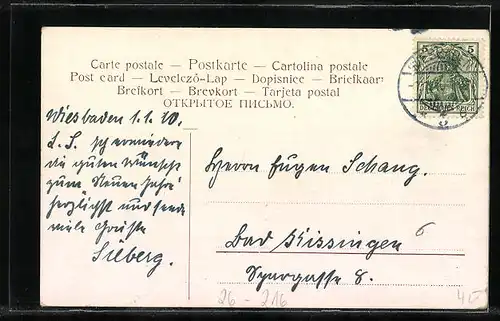 Carte postale — Postkarte — Cartolina postale
Post card — Levelező-Lap — Dopisnice — Briefkaart
Brefkort — Brevkort — Tarjeta postal
ОТКРЫТОЕ ПИСЬМО.
5 5
DEUTSCHES REICH
Wiesbaden 1.1.10.
L. S. erwiedere
die guten Wünsche
zum "Neuen Jahre"
herzlichst und sende
viele Grüsse
Sieberg.
Herrn Eugen Schang.
Bad Kissingen
8.
6
26 - 216